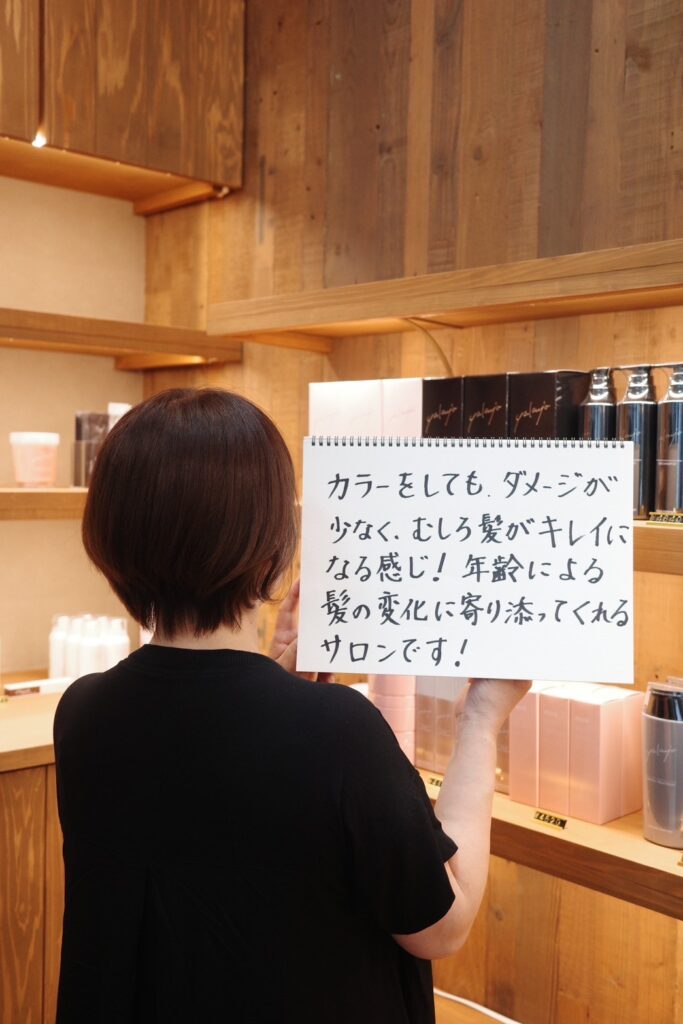 カラーをしても、ダメージが
少なく、むしろ髪がキレイに
なる感じ! 年齢による
髪の変化に寄り添ってくれる
サロンです!